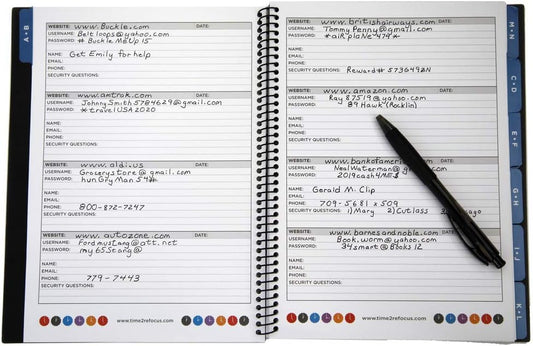 A-B
WEBSITE: www.Buckle.com DATE:
USERNAME: Beltloops@yahoo.com
PASSWORD: # Buckle MeUp 15
NAME: Get Emily for help
EMAIL:
PHONE:
SECURITY QUESTIONS:
WEBSITE: www.amtrak.com DATE:
USERNAME: JohnnySmith5784629@gmail.com
PASSWORD: *travelUSA2020
NAME:
EMAIL:
PHONE:
SECURITY QUESTIONS:
WEBSITE: www.aldi.us DATE:
USERNAME: Grocerystore@gmail.com
PASSWORD: hungryMan54*
NAME:
EMAIL:
PHONE: 800-872-7247
SECURITY QUESTIONS:
WEBSITE: www.autozone.com DATE:
USERNAME: Fordmustang@att.net
PASSWORD: my65Stang@
NAME:
EMAIL:
PHONE: 779-7443
SECURITY QUESTIONS:
www.time2refocus.com
WEBSITE: www.britishairways.com DATE:
USERNAME: TommyPenny@gmail.com
PASSWORD: *airplaNe479*
NAME:
EMAIL:
PHONE: Reward# 5736492N
SECURITY QUESTIONS:
WEBSITE: www.amazon.com DATE:
USERNAME: Ray87519@yahoo.com
PASSWORD: 89 Hawk (Rocklin)
NAME:
EMAIL:
PHONE:
SECURITY QUESTIONS:
WEBSITE: www.bankofameri
USERNAME: NealWaterman@
PASSWORD: 2019cash4ME$
NAME: Gerald M. Clip
EMAIL:
PHONE: 709-5681 x 509
SECURITY QUESTIONS: 1) Mary 2) Cutlass
WEBSITE: www.barnesandnoble.com DATE:
USERNAME: Book.worm@yahoo.com
PASSWORD: 34smart@Books12
NAME:
EMAIL:
PHONE:
SECURITY QUESTIONS:
www.time2refocus.com
M-N
C-D
E-F
G-H
I-J
K-L